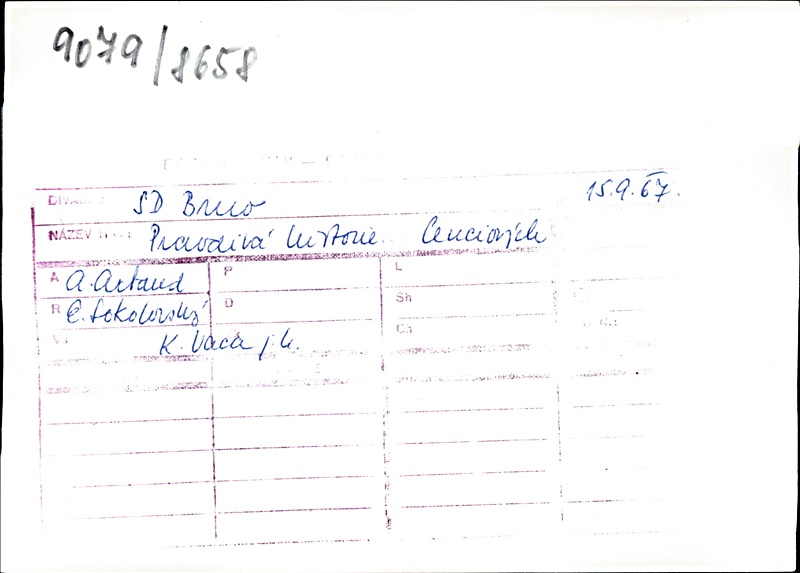 9079/8658
DIVADLO SD Brno 15.9.67.
NÁZEV HRY Pravdivá historie Cenciových
A A. Artaud P L
R E. Sokolovský D Sh
K. Vaca j.h. Ch